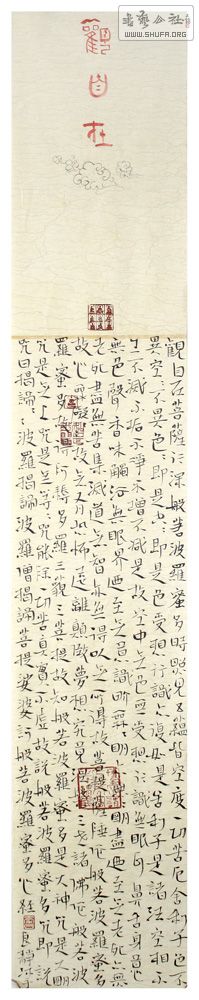 书艺公社
WWW.SHUFA.ORG
觀自在
觀自在菩薩行深般若波羅蜜多時照見五蘊皆空度一切苦厄舍利子色不
異空空不異色色即是空空即是色受想行識亦復如是舍利子是諸法空相不
生不滅不垢不淨不增不減是故空中无色无受想行識无眼耳鼻舌身意
無色聲香味觸法無眼界乃至无意識界無無明亦無無明盡乃至无老死亦無
老死盡無苦集滅道无智亦無得以无所得故菩提薩埵依般若波羅蜜多
故心無罣礙無罣礙故无有恐怖遠離顛倒夢想究竟涅槃三世諸佛依般若波
羅蜜多故得阿耨多羅三藐三菩提故知般若波羅蜜多是大神咒是大明
咒是无上咒是无等等咒能除一切苦真實不虛故說般若波羅蜜多咒即說
咒曰揭諦揭諦波羅揭諦波羅僧揭諦菩提娑婆訶般若波羅蜜多心經